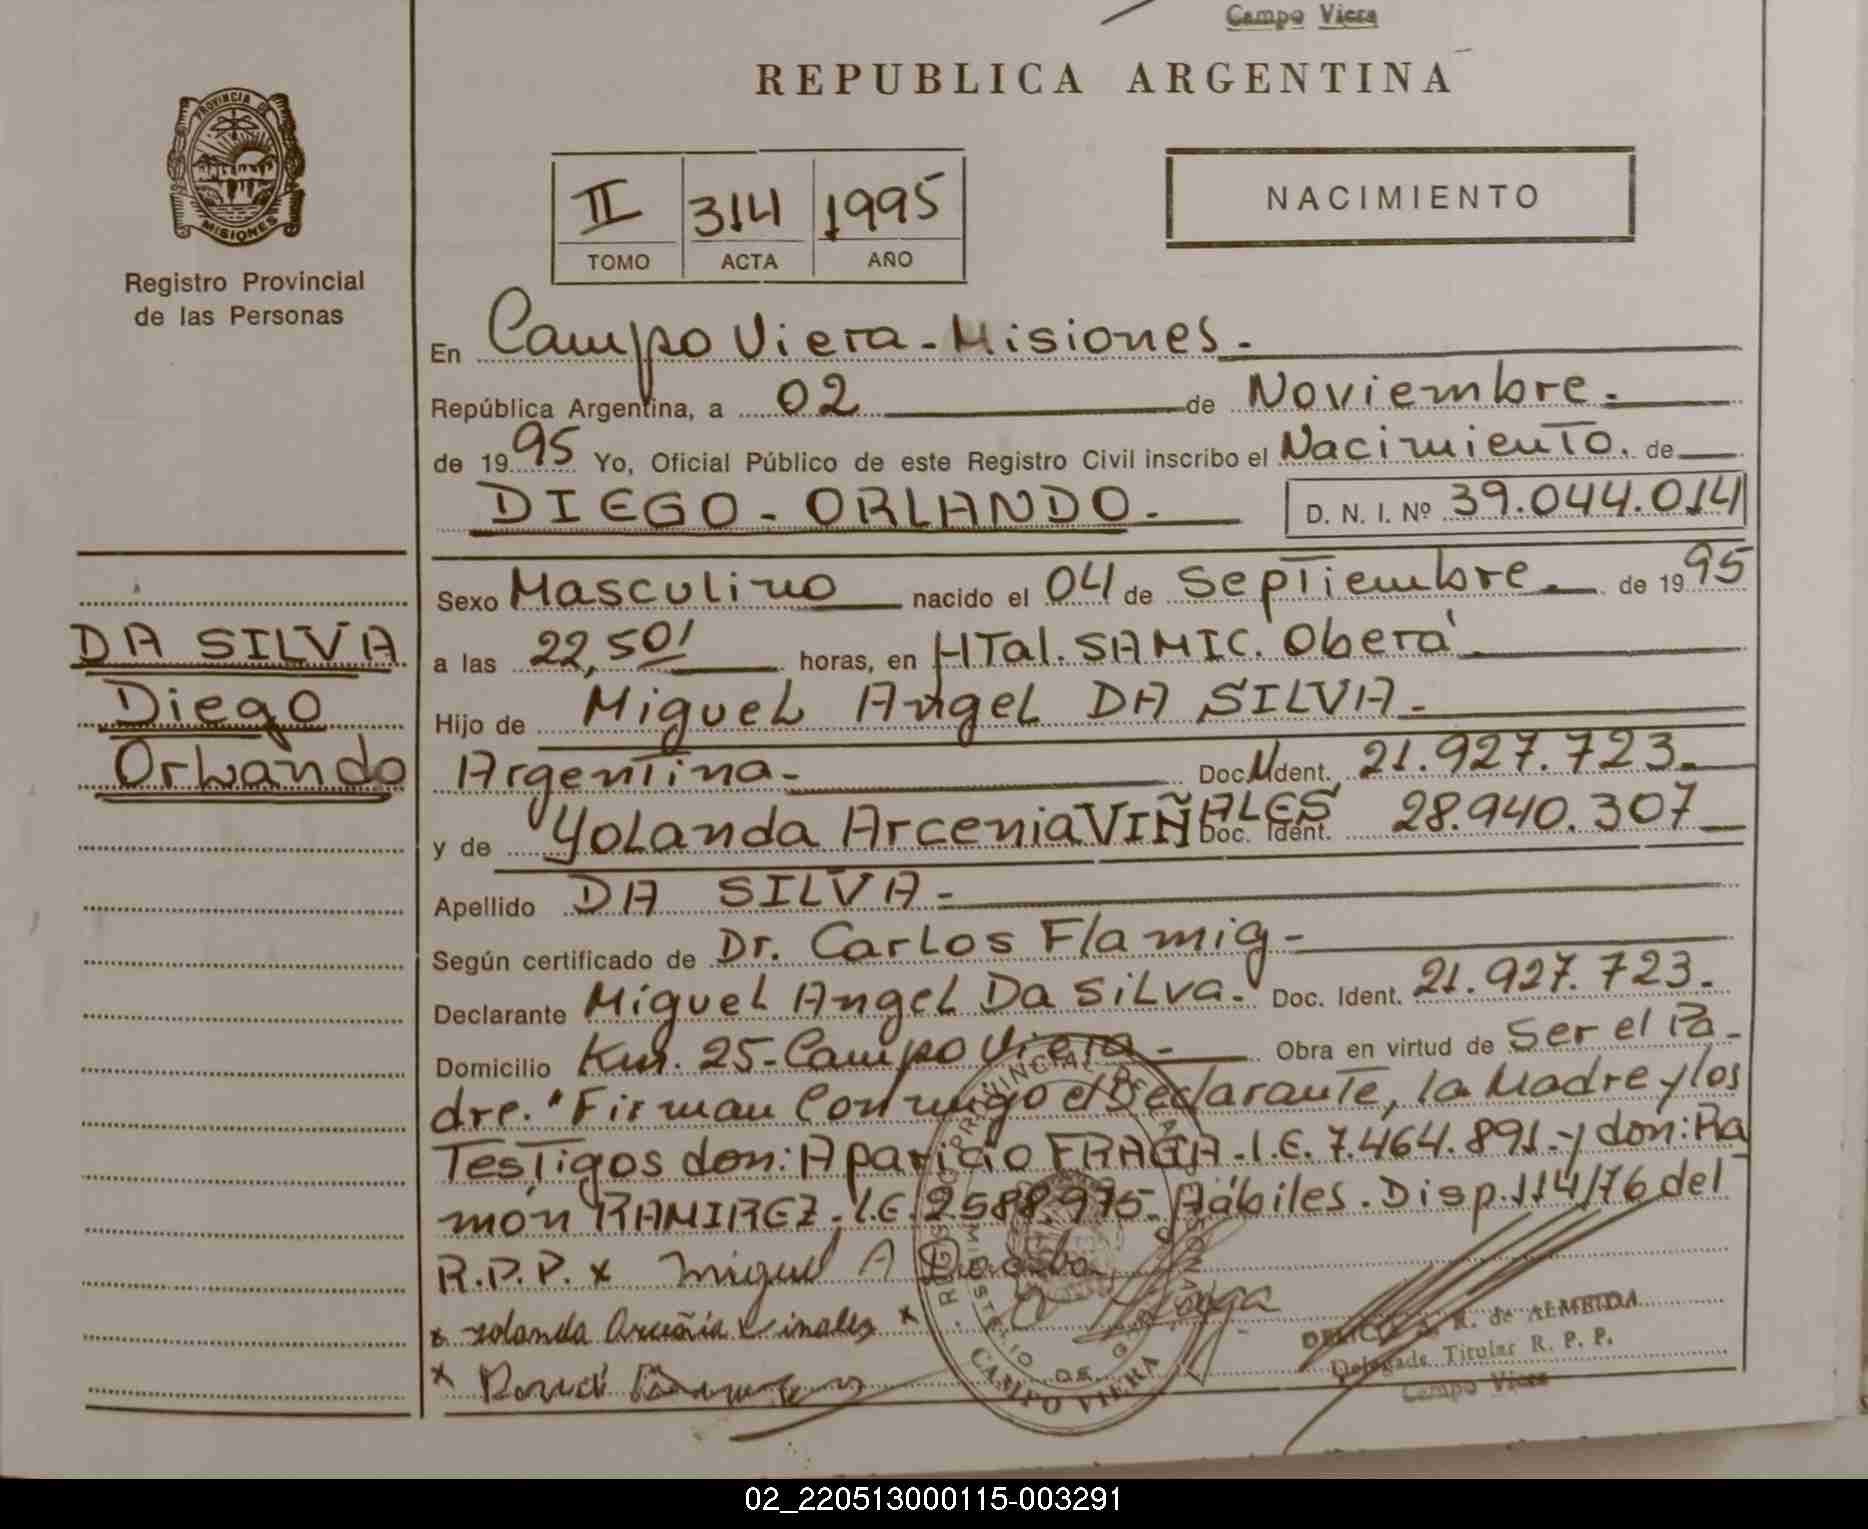 Campo Viera
REPUBLICA ARGENTINA
PROVINCIA D
MISIONES
Registro Provincial
de las Personas
II 314 1995
TOMO ACTA AÑO
NACIMIENTO
En Campo Viera - Misiones.
República Argentina, a 02 de Noviembre.
de 1995 Yo, Oficial Público de este Registro Civil inscribo el Nacimiento. de
DIEGO - ORLANDO. D. N. I. Nº 39.044.014
Sexo Masculino nacido el 04 de Septiembre. de 1995
DA SILVA
a las 22,50' horas, en HTal. SAMIC. Oberá
Diego
Hijo de Miguel Angel DA SILVA.
Orlando
Argentina- Doc. Ident. 21.927.723.
y de Yolanda Arcenia VIÑALES Doc. Ident. 28.940.307
Apellido DA SILVA -
Según certificado de Dr. Carlos Flamig -
Declarante Miguel Angel Da Silva. Doc. Ident. 21.927.723.
Domicilio Km. 25 - Campo Viera - Obra en virtud de Ser el Pa-
dre. "Firman Conmigo el Declarante, la Madre y los
Testigos don: Aparicio FRAGA. I.E. 7.464.891.- y don: Ra
món RAMIREZ. I.E. 2588.975. Hábiles. Disp. 114/76 del
R.P.P. x Miguel A
x Yolanda x
x
CAMPO VIERA
R. de ALMEIDA
Delegada Titular R. P. P.
Campo Viera
02_220513000115-003291